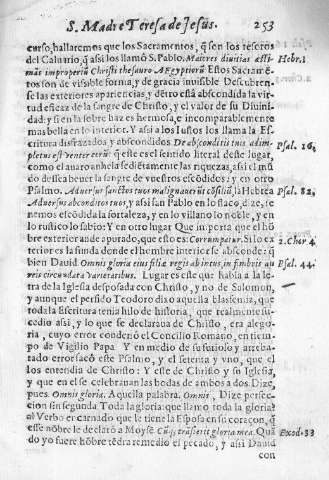 S. Madre Teresa de Jesus. 253
curso, hallaremos que los Sacramentos, q̃ son los tesoros
del Caluario, q̃ assi los llamó S. Pablo. Maiores diuitias æsti- Hebr. 1
màs improperiũ Christi thesauro Aegyptiorũ Estos Sacramẽ-
tos son de visible forma, y de gracia inuisible Descubren-
se las exteriores apariencias, y dẽtro està abscondida la vir-
tud eficaz de la sangre de Christo, y el valor de su Diuini-
dad; y si en la sobre haz es hermosa, e incomparablemente
mas bella en lo interior. Y assi a los Iustos los llama la Es-
critura disfrazados, y abscondidos De absconditis tuis adim- Psal. 16.
pletus est venter eorũ q̃ este es el sentido literal deste lugar,
como el auaro anhela sediẽtamente las riquezas, assi el mũ
do desea beuer la sangre de vuestros escõdidos: y en otro
Psalmo. Aduersus sanctos tuos malignauerũt cõsiliũ, la Hebrea Psal. 82.
Aduersus absconditos tuos, y assi san Pablo en lo flaco, dize, te-
nemos escõdida la fortaleza, y en lo villano lo noble, y en
lo rustico lo sabio: Y en otro lugar Que importa que el hõ
bre exterior ande apurado, que esto es: Corrumpatur. Si lo ex 2. Chor 4.
terior es la funda donde el hombre interior se absconde: q̃
bien Dauid Omnis gloria eius filiæ regis ab intus, in fimbrijs au Psal. 44.
reis circundata varietatibus. Lugar es este que habla a la le-
tra de la Iglesia desposada con Christo, y no de Salomon,
y aunque el perfido Teodoro dixo aquella blasfemia, que
toda la Escritura tenia hilo de historia, que realmente su-
cedio assi, y lo que se declaraua de Christo, era alego-
ria, cuyo error condenò el Concilio Romano, en tiem-
po de Vigilio Papa Y en medio de su furioso y arreba-
tado error sacò este Psalmo, y el setenta y vno, que el
los entendia de Christo: Y este de Christo y su Iglesia,
y que en el se celebrauan las bodas de ambos a dos. Dize,
pues. Omnis gloria. Aquella palabra. Omnis, Dize perfec-
cion sin segunda Toda la gloria: que llamo toda la gloria?
al Verbo encarnado que le tiene la Esposa en su coraçon, q̃
esse nõbre le declarò a Moyse Cũq; trãsierit gloria mea. Quã Exod. 33
do yo fuere hõbre tẽdra remedio el pecado, y assi Dauid
con